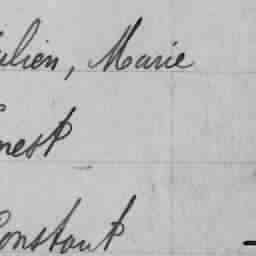 ulien, Marie
rnest
Constant